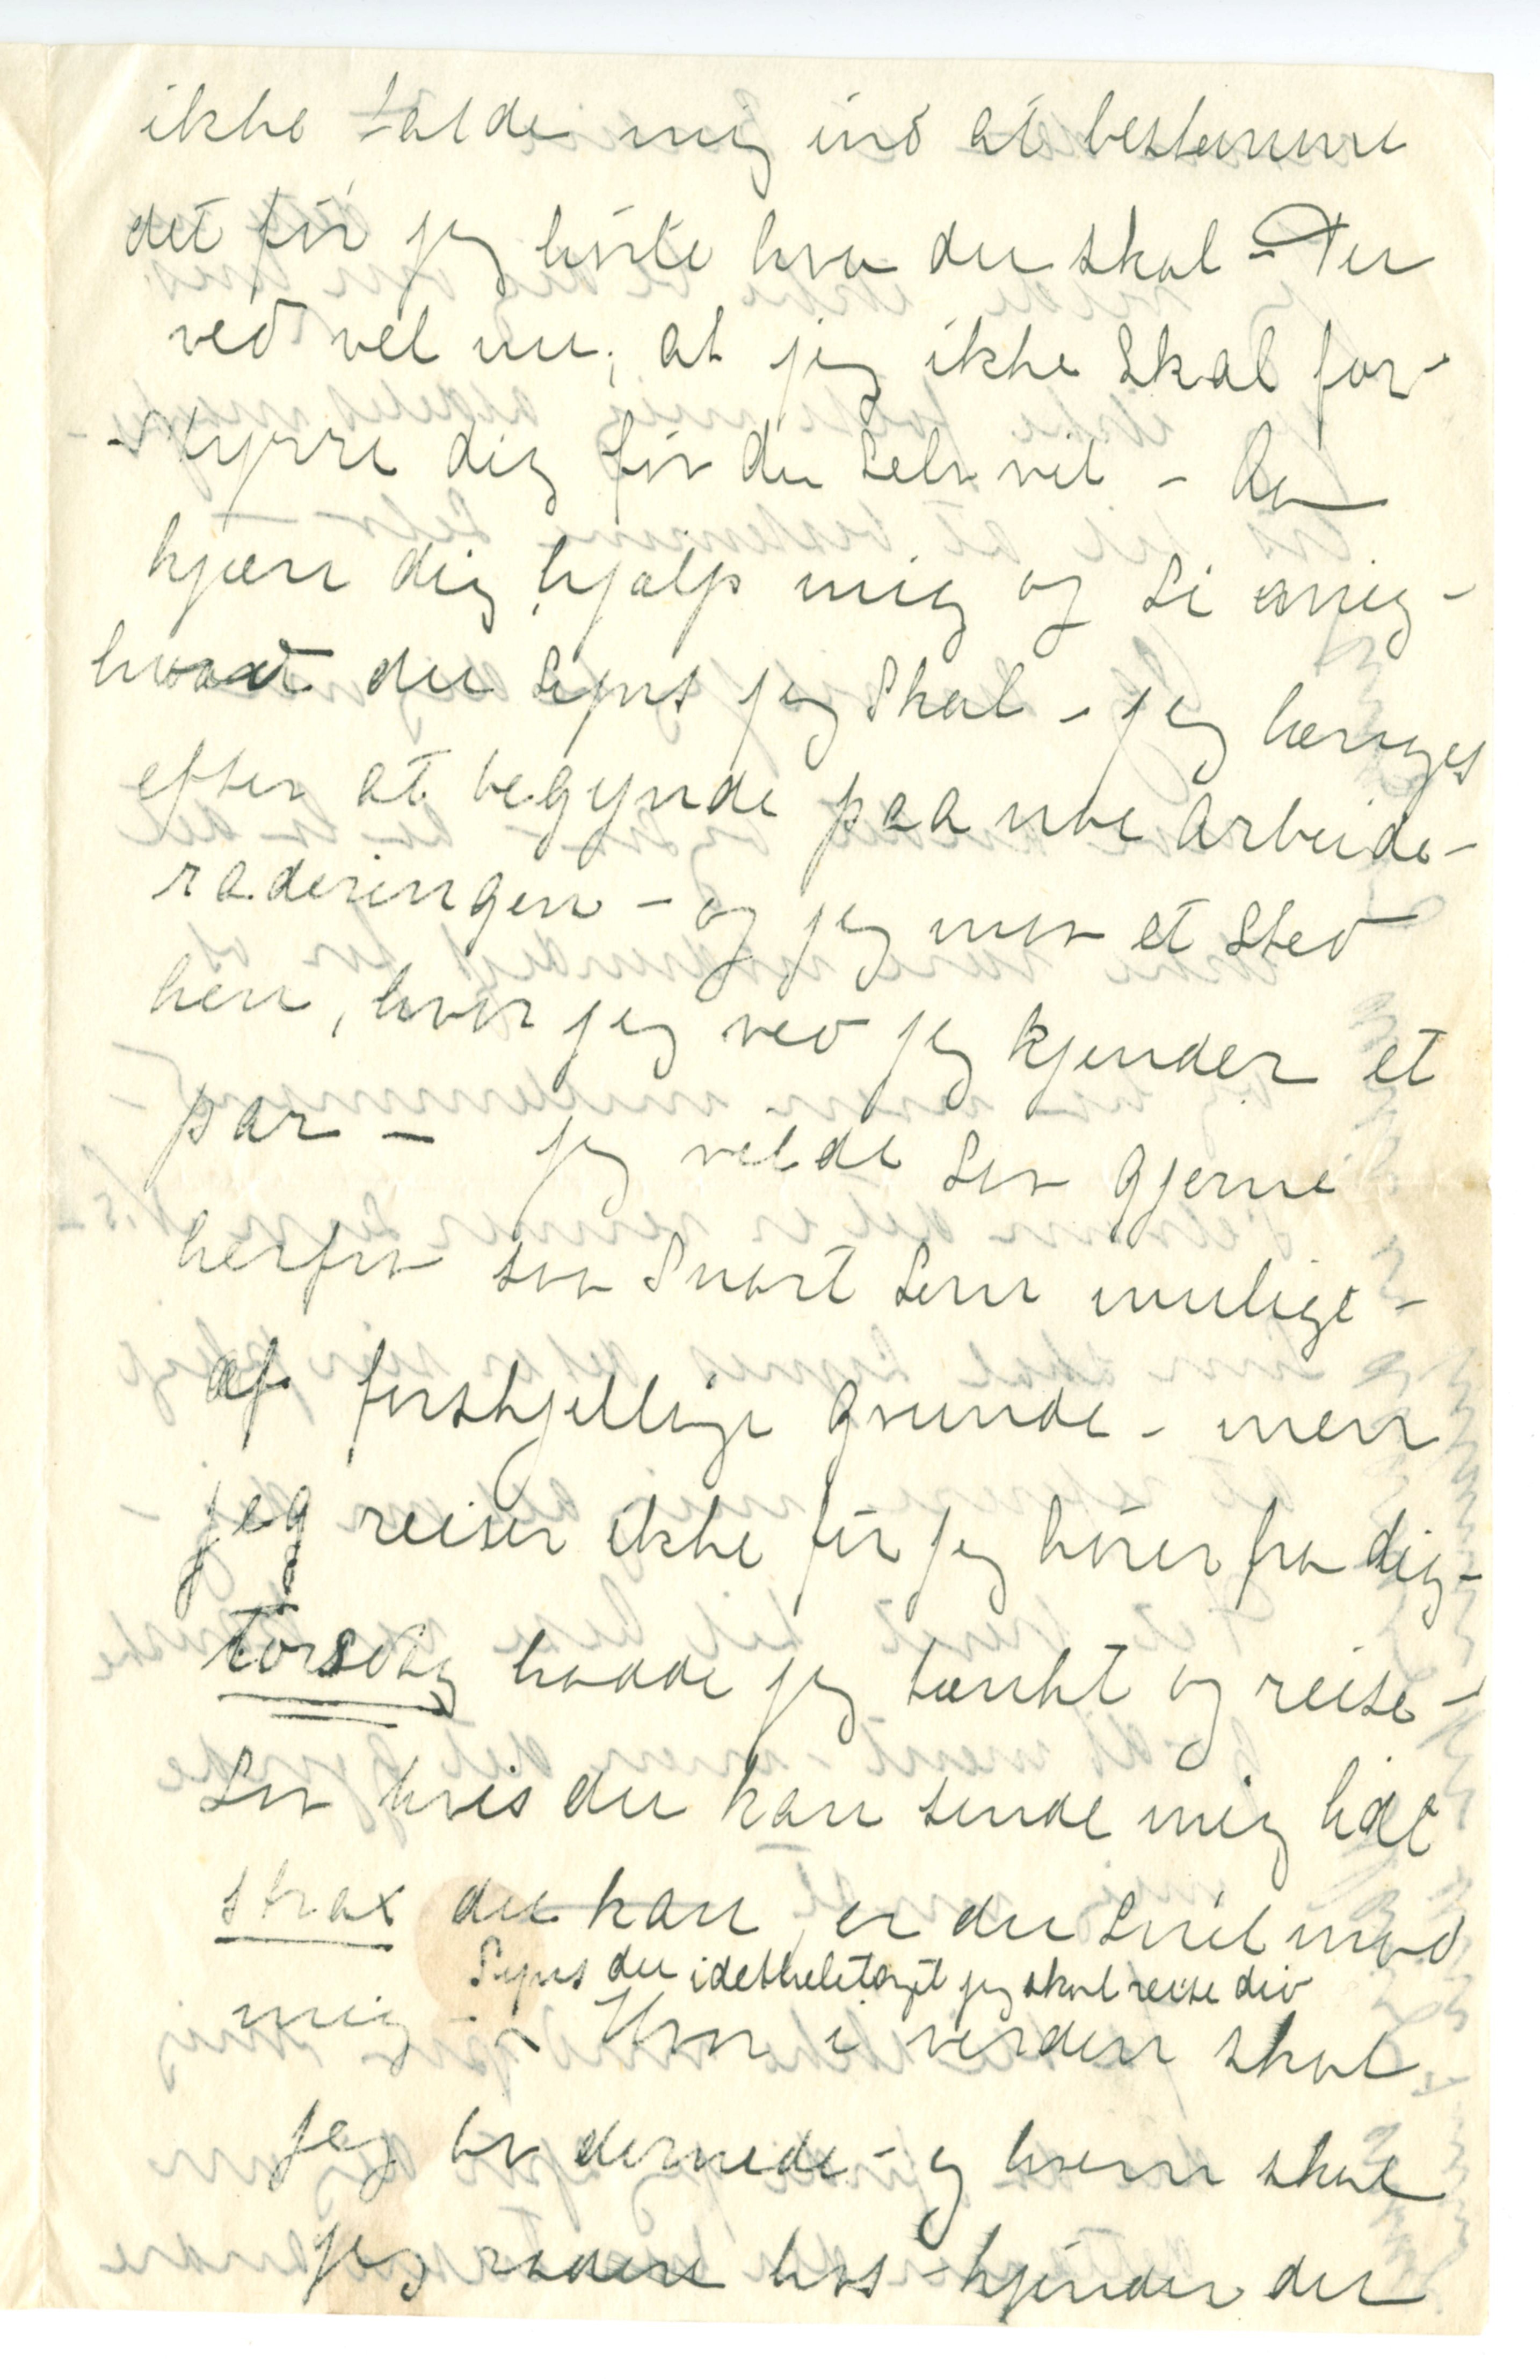 ikke falde mig ind at bestemme
det før jeg hørte hva du skal – Du
ved vel nu, at jeg ikke skal for-
styrre dig før du selv vil –
kjære dig hjælp mig og si mig –
hvad du synes jeg skal – jeg længes
efter at begynde paa noe arbeide –
raderingen – og jeg maa et sted
hen, hvor jeg ved jeg kjender et
par – jeg vilde saa gjerne
herfra saa snart som muligt –
af forskjellige grunde – men
jeg reiser ikke før jeg hører fra dig –
torsdag hadde jeg tænkt og reise –
saa hvis du kan sende mig lidt
strax du kan, er du snil mod
Synes du idethelet at jeg skal reise did
mig – Hvor i verden skal
jeg bo dernede – og hvem skal
jeg radere hos – kjender du